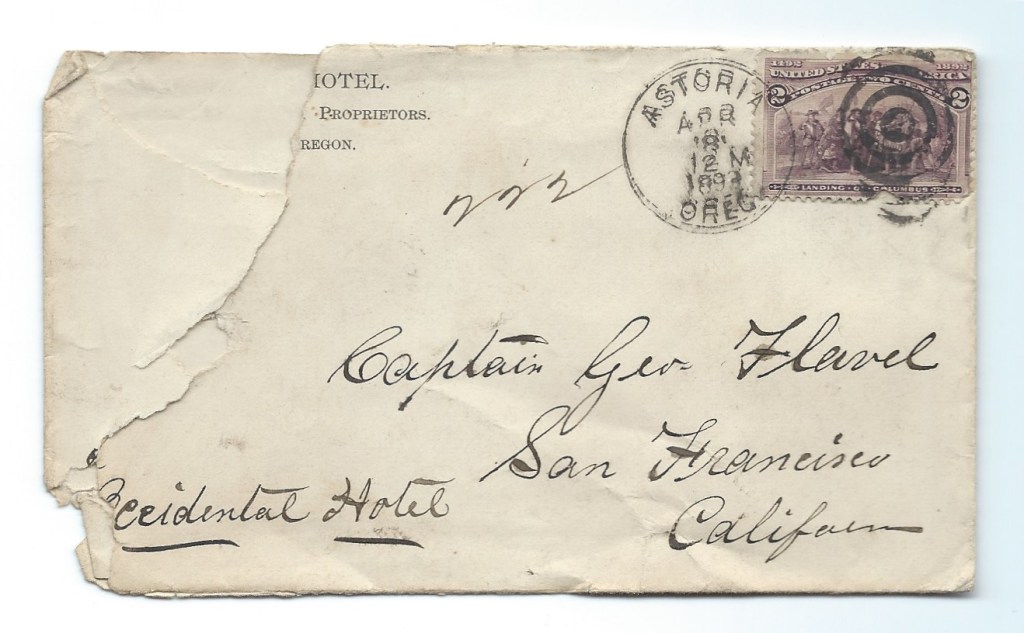 HOTEL.
PROPRIETORS.
REGON.
ASTORIA
APR
18
12 M
1893
OREG.
1492 1892
UNITED STATES AMERICA
POSTAGE TWO CENTS
2 2
LANDING OF COLUMBUS
Captain Geo. Flavel
San Francisco
Occidental Hotel
Californ